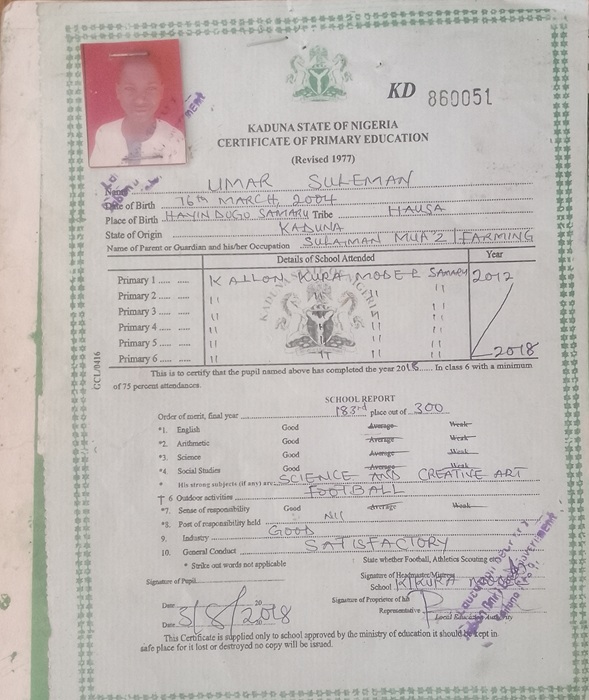 KD 860051
KADUNA STATE OF NIGERIA
CERTIFICATE OF PRIMARY EDUCATION
(Revised 1977)
Name UMAR SULEMAN
Date of Birth 16th MARCH, 2004
Place of Birth HAYIN DOGO SAMARU Tribe HAUSA
State of Origin KADUNA
Name of Parent or Guardian and his/her Occupation SULAIMAN MUA'Z FARMING
Details of School Attended Year
Primary 1 KALLON KURA MODEL 2012
Primary 2 " "
Primary 3 " " "
Primary 4 " " "
Primary 5 " " "
Primary 6 " " " " 2018
This is to certify that the pupil named above has completed the year 2018 In class 6 with a minimum
of 75 percent attendances.
GCL/0416
SCHOOL REPORT
Order of merit, final year 183rd place out of 300
*1. English Good Average Weak
*2. Arithmetic Good Average Weak
*3. Science Good Average Weak
*4. Social Studies Good Average Weak
* His strong subjects (if any) are: SCIENCE AND CREATIVE ART
† 6 Outdoor activities FOOTBALL
*7. Sense of responsibility Good Average Weak
*8. Post of responsibility held Nil
9. Industry GOOD
10. General Conduct SATISFACTORY
* Strike out words not applicable State whether Football, Athletics Scouting etc
Signature of Pupil Signature of Headmaster/Mistress
School K/KURA
Signature of Proprietor of
Date 5/8/2018 Representative
Date Local Education Authority
This Certificate is supplied only to school approved by the ministry of education it should be kept in
safe place for it lost or destroyed no copy will be issued.